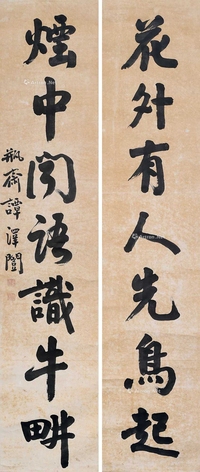 花外有人先鳥起
煙中聞語識牛畊
瓶齋譚澤闓